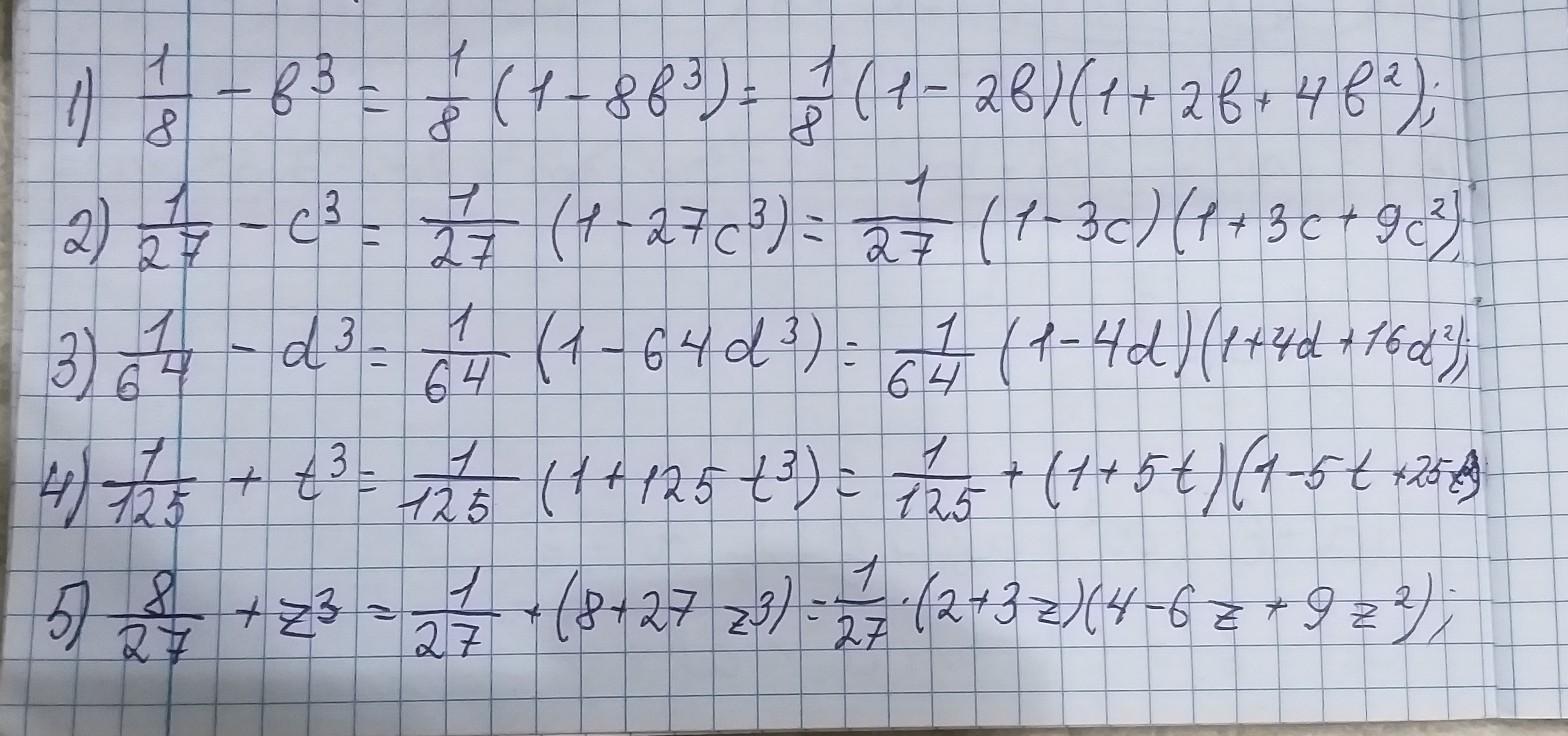 1) 1/8 - b³ = 1/8 (1 - 8b³) = 1/8 (1 - 2b)(1 + 2b + 4b²);
2) 1/27 - c³ = 1/27 (1 - 27c³) = 1/27 (1 - 3c)(1 + 3c + 9c²);
3) 1/64 - d³ = 1/64 (1 - 64d³) = 1/64 (1 - 4d)(1 + 4d + 16d²);
4) 1/125 + t³ = 1/125 (1 + 125t³) = 1/125 + (1 + 5t)(1 - 5t + 25
5) 8/27 + z³ = 1/27 + (8 + 27z³) = 1/27 · (2 + 3z)(4 - 6z + 9z²);